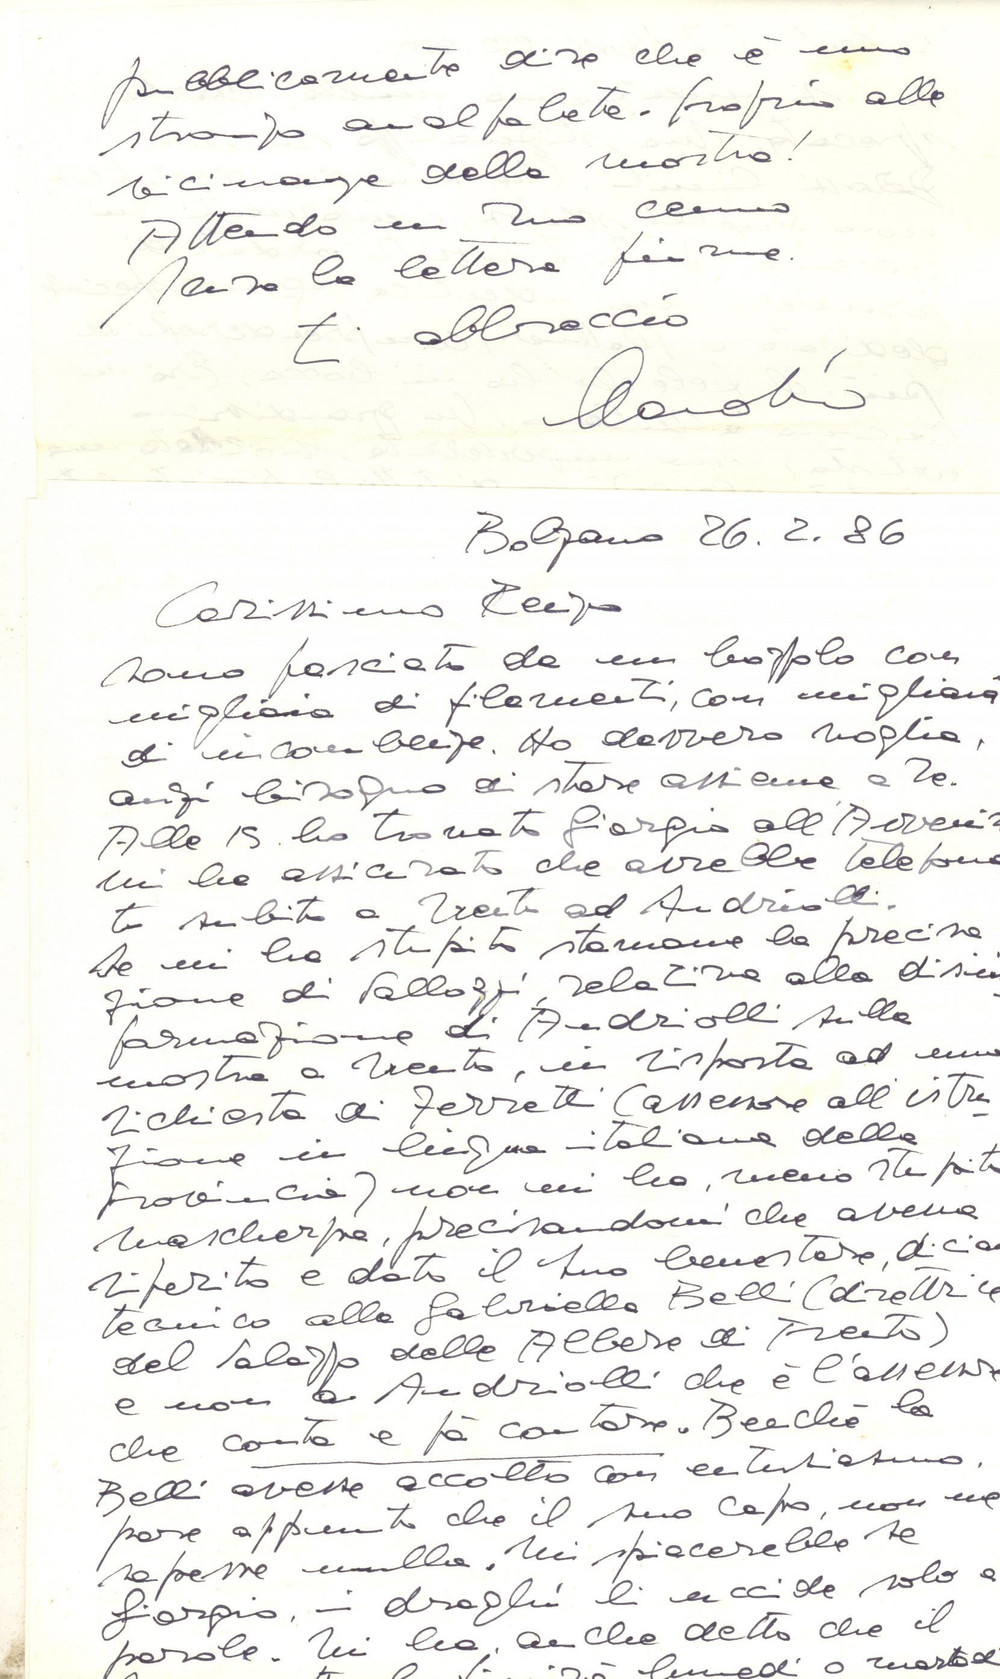 pubblicamente dire che è uno
stronzo analfabeta. Proprio alla
vicinanze della mostra!
Attendo un tuo cenno
senza la lettera firme.
ti abbraccio
Bolzano 26. 2. 86
Carissimo Renzo
sono fasciato da un bozzolo con
migliaia di filamenti, con migliaia
di incombenze. Ho davvero voglia,
anzi bisogno di stare assieme a Te.
Alle 15 ho trovato Giorgio all'
mi ha assicurato che avrebbe telefona
to subito a Trento ad Andriolli.
Se mi ha stupito stamane la precisa
zione di Pallozzi, relativa alla disin
formazione di Andriolli sulla
mostra a Trento, in risposta ad una
richiesta di Ferretti (assessore all'istru
zione in lingua italiana della
Provincia) non mi ha, meno stupito
Mascherpa, precisandomi che aveva
riferito e dato il suo benestare, diciam
tecnico alla Gabriella Belli (direttrice
del Palazzo delle Albere di Trento)
e non a Andriolli che è l'assessore
che conta e fà contare. Benchè la
Belli avesse accolto con entusiasmo,
pare appunto che il suo capo, non ne
sapesse nulla. Mi spiacerebbe se
Giorgio, i draghi li uccide solo a
parole. Mi ha, anche detto che il
lunedì o martedì